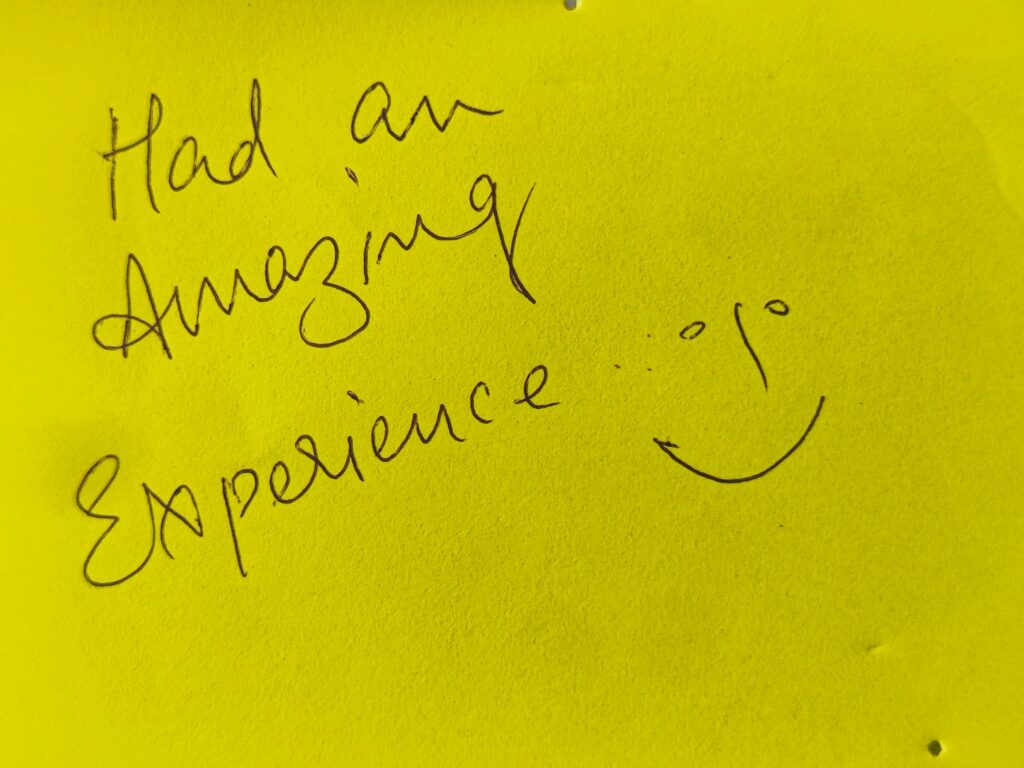 Had an
Amazing
Experience...